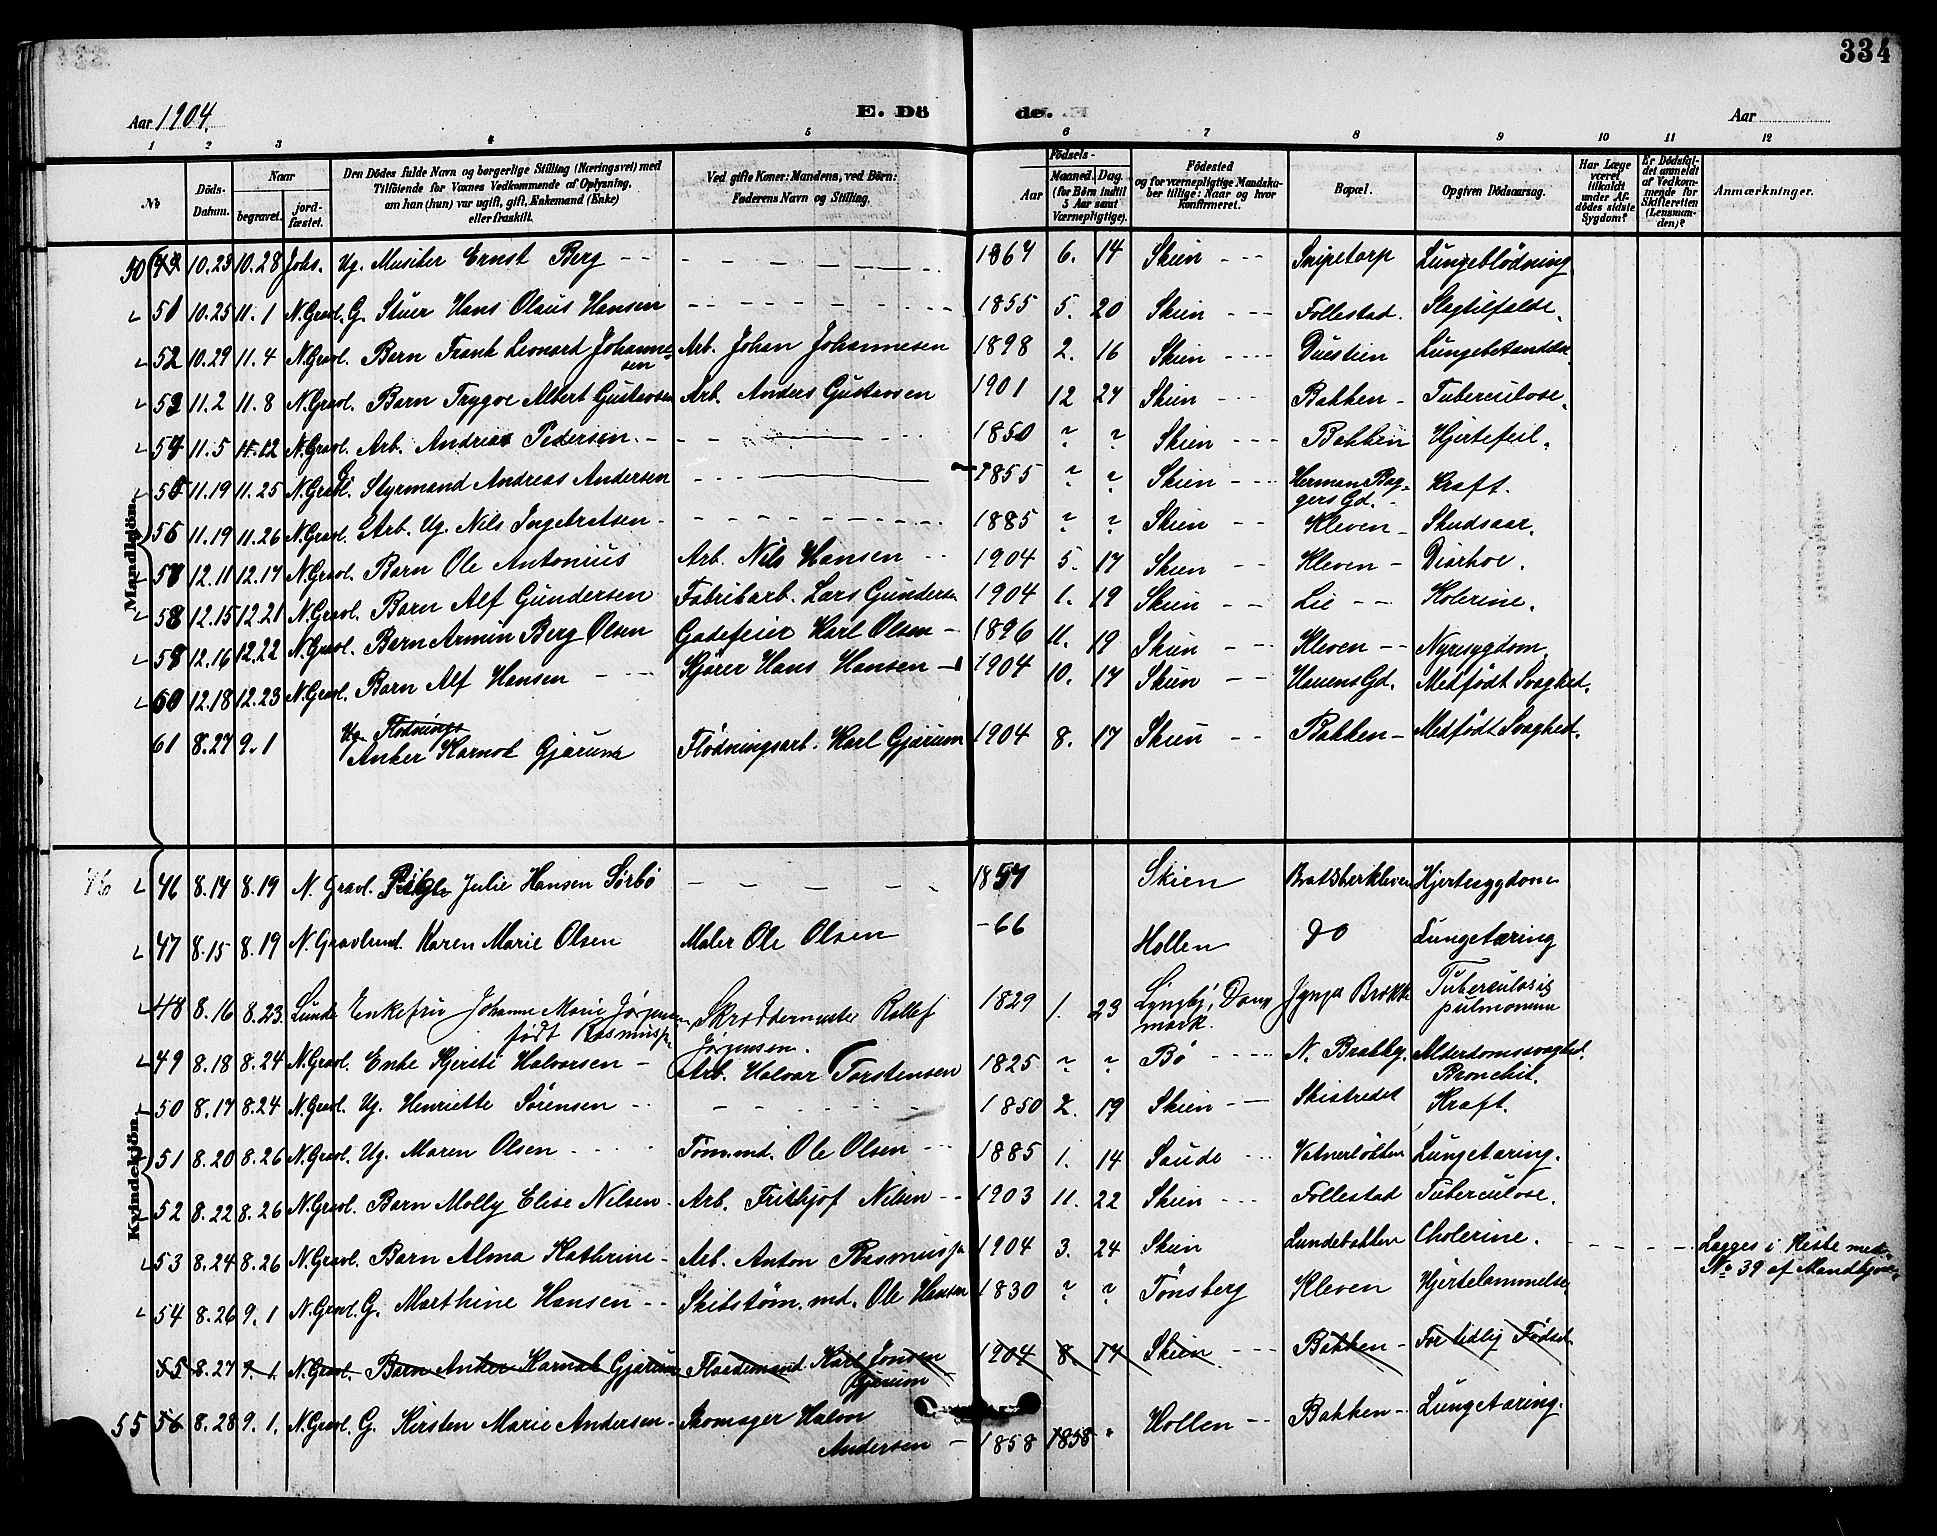 334
Aar 1904.
E. Dö de.
Aar
1 2 3 4 5 6 7 8 9 10 11 12
No
Döds-Datum.
Naar begravet. jord-fæstet.
Den Dödes fulde Navn og borgerlige Stilling (Næringsvei) med Tilföiende for Voxnes Vedkommende af Oplysning, om han (hun) var ugift, gift, Enkemand (Enke) eller fraskilt.
Ved gifte Koner: Mandens, ved Börn: Faderens Navn og Stilling.
Födsels-
Aar Maaned. Dag. (for Börn indtil 5 Aar samt Værnepligtige).
Födested og for værnepligtige Mandskaber tillige: Naar og hvor konfirmeret.
Bopæl.
Opgiven Dödsaarsag.
Har Læge været tilkaldt under Afdödes sidste Sygdom?
Er Dödsfaldet anmeldt af Vedkommende for Skifteretten (Lensmanden)?
Anmærkninger.
Mandkjön.
50 10.23 10.28 Johs. Ug. Musiker Ernst Berg 1867 6. 14 Skien Snipetorp Lungeblödning
51 10.25 11.1 N.Gravl. G. Stuer Hans Olaus Hansen 1855 5. 20 Skien Follestad. Slagtilfælde.
52 10.29 11.4 N.Gravl. Barn Frank Leonard Johannesen Arb. Johan Johannesen 1898 2. 16 Skien Duestien
53 11.2 11.8 N.Gravl. Barn Trygve Albert Gustavsen Arb. Anders Gustavsen 1901 12 24 Skien Bakken Tuberculose.
54 11.5 11.12 N.Gravl. Arb. Andreas Pedersen. 1850 ? ? Skien Bakken Hjertefeil.
55 11.19 11.25 N.Gravl. G. Styrmand Andreas Andersen 1855 ? ? Skien Herman Baggers Gd. Kræft.
56 11.19 11.26 N.Gravl. Arb. Ug. Nils Ingebretsen 1885 ? ? Skien Kleven Skudsaar.
57 12.11 12.17 N.Gravl. Barn Ole Antonius Arb. Nils Hansen 1904 5. 17 Skien Kleven Diarhoe.
58 12.15 12.21 N.Gravl. Barn Alf Gundersen Fabrikarb. Lars Gundersen 1904 1. 19 Skien Lie Kolerine.
59 12.16 12.22 N.Gravl. Barn Armin Berg Olsen Gadefeier Karl Olsen 1896 11. 19 Skien Kleven Nyresygdom
60 12.18 12.23 N.Gravl. Barn Alf Hansen Kjører Hans Hansen 1904 10. 17 Skien Uauens Gd. Medfödt Svaghed.
Ug. Flödnings
61 8.27 9.1 Anker Karnot Gjærum Flödningsarb. Karl Gjærum 1904 8. 17 Skien Bakken Medfödt Svaghed.
Kvindekjön.
46 46 8.14 8.19 N. Gravl. Pige Julie Hansen Sörbö 1857 Skien Bratsberkleven Hjertesygdom
47 8.15 8.19 N. Gravlund. Karen Marie Olsen Maler Ole Olsen -66 Hollen Do Lungetæring
48 8.16 8.23. Lunde Enkefru Johanne Marie Jörgensen, født Rasmussen Skræddermester Rollef Jørgensen. 1829 1. 23 Lyngby, Danmark. Tuberculosis pulmonum
49 8.18 8.24 N.Gravl. Enke Kjersti Halvorsen Arb. Halvor Torstensen 1825 ? ? Bø N. Brekkg. Alderdomssvaghed. Bronchit.
50 8.17 8.24 N.Gravl. Ug. Henriette Sørensen 1850 2. 19 Skien Skistredet Kræft.
51 8.20 8.26 N.Gravl. Ug. Maren Olsen Tøm.md. Ole Olsen 1885 1. 14 Saude Lungetæring.
52 8.22 8.26 N.Gravl. Barn Molly Elise Nilsen Arb. Frithjof Nilsen 1903 11. 22 Skien Follestad Tuberculose.
53 8.24 8.26 N.Gravl. Barn Alma Kathrine Arb. Anton Rasmussen 1904 3. 24 Skien Lundebakken Cholerine. Lægges i Kiste med No 39 af Mandkjön.
54 8.26 9.1 N.Gravl. G. Marthine Hansen Skibstøm.md. Ole Hansen 1830 ? ? Tønsberg Kleven Hjertelammelse
55 8.27 9.1. N.Gravl. Barn Anker Karnot Gjærum Karl Jonsen Gjærum 1904 8. 17 Skien Bakken For tidlig Födsel
55 56 8.28 9.1. N.Gravl. G. Kirsten Marie Andersen Skomager Halvor Andersen 1858 1858 Hollen Bakken Lungetæring.